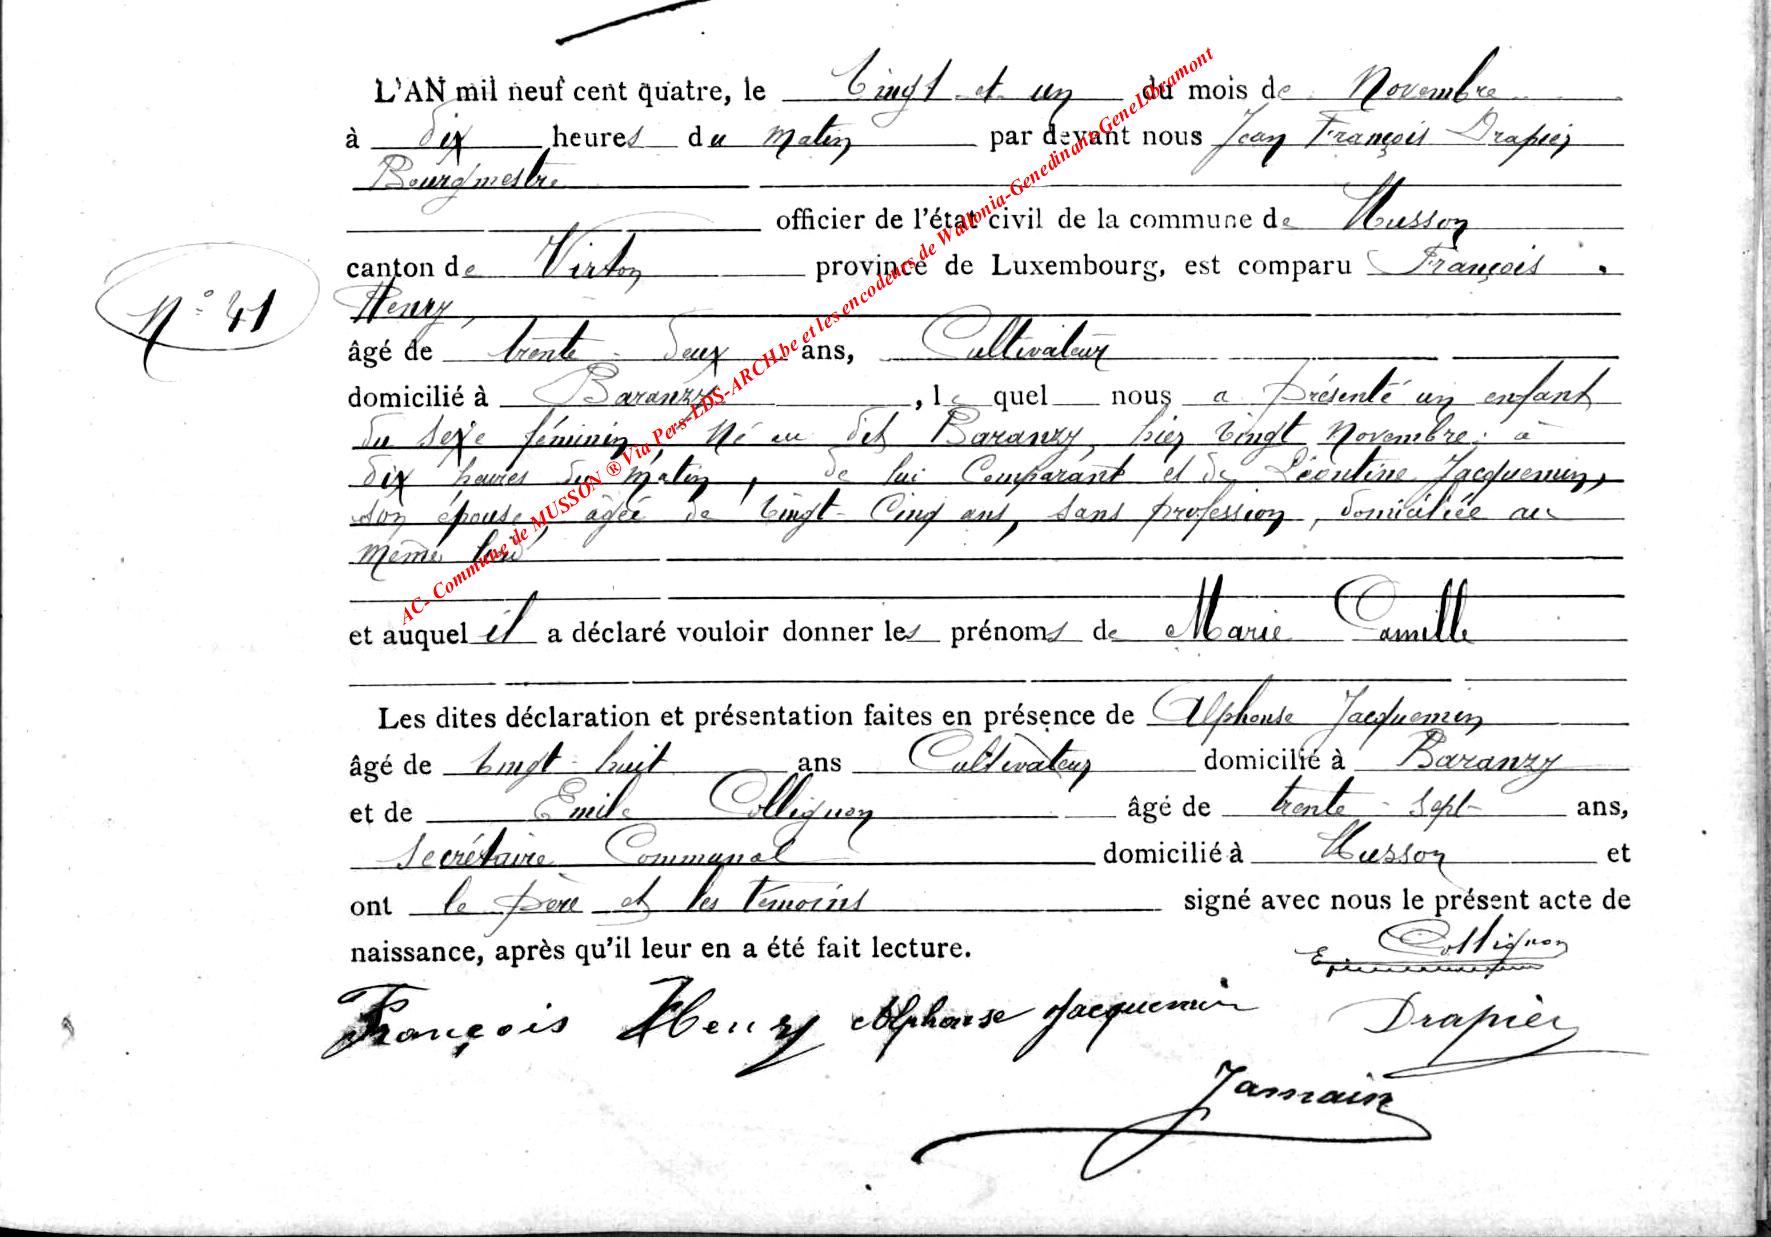 L'AN mil neuf cent quatre, le vingt et un du mois de Novembre
à dix heures du matin par devant nous Jean François Drapier
Bourgmestre
officier de l'état civil de la commune de Musson
canton de Virton province de Luxembourg, est comparu François
N° 41
Henry,
âgé de trente-deux ans, Cultivateur
domicilié à Baranzy, le quel nous a présenté un enfant
du sexe féminin, Né au dit Baranzy, hier vingt Novembre à
dix heures du matin, de lui Comparant et de Léontine Jacquemin,
son épouse, âgée de vingt-Cinq ans, sans profession, domiciliée au
même lieu
et auquel il a déclaré vouloir donner les prénoms de Marie Camille
Les dites déclaration et présentation faites en présence de Alphonse Jacquemin
âgé de vingt-huit ans Cultivateur domicilié à Baranzy
et de Emile Collignon âgé de trente-sept ans,
Secrétaire Communal domicilié à Musson et
ont le père et les témoins signé avec nous le présent acte de
naissance, après qu'il leur en a été fait lecture.
E Collignon
François Henry Alphonse Jacquemin Drapier
Jamain
AC- Commune de MUSSON ® Via Pers-LDS-ARCH.be et les encodeurs de Wallonia-Genedinant-GeneLibramont